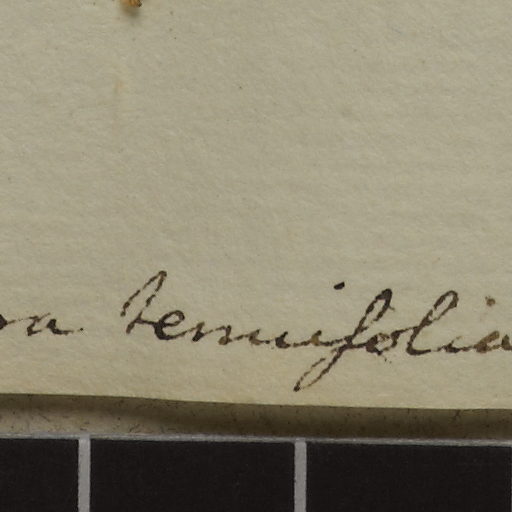 ra tenuifolia